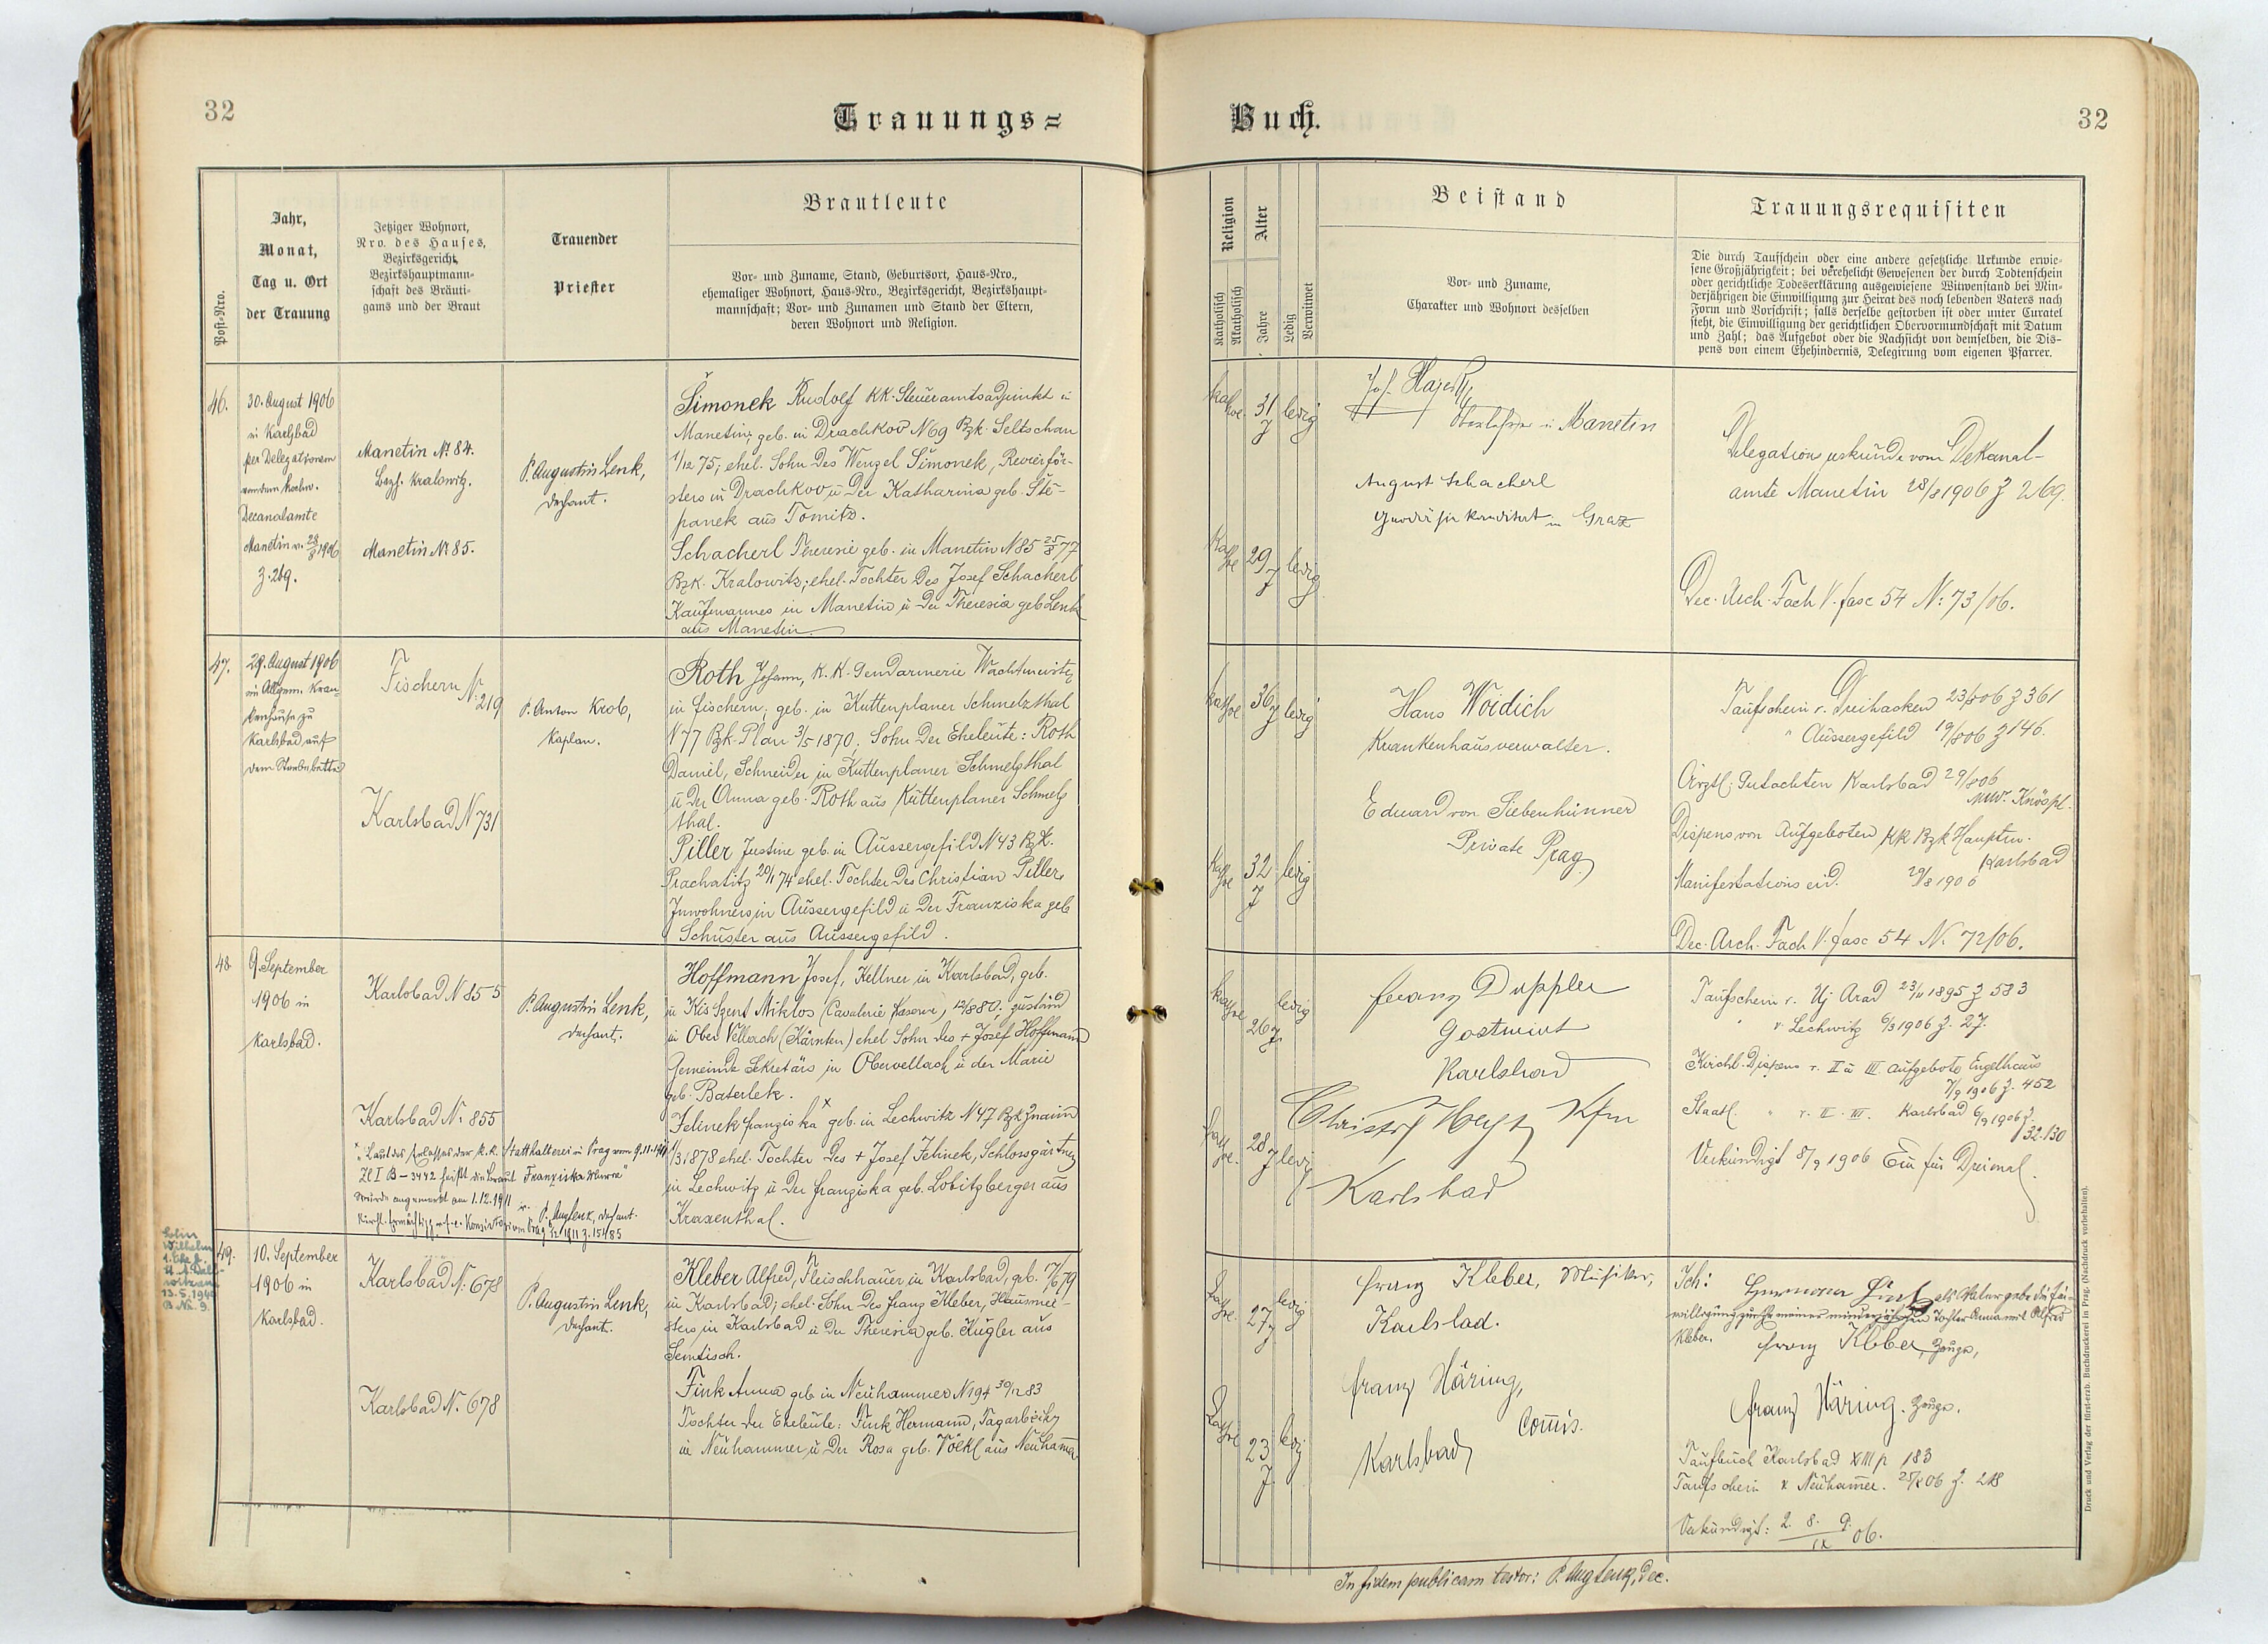 32
Trauungs=
Jahr,
Monat,
Tag u. Ort
der Trauung
Post=Nro.
Jetziger Wohnort,
Nro. des Hauses,
Bezirksgericht,
Bezirkshauptmann=
schaft des Bräuti=
gams und der Braut
Trauender
Priester
Brautleute
Vor= und Zuname, Stand, Geburtsort, Haus=Nro.,
ehemaliger Wohnort, Haus=Nro., Bezirksgericht, Bezirkshaupt=
mannschaft; Vor= und Zunamen und Stand der Eltern,
deren Wohnort und Religion.
46.
30. August 1906
in Karlsbad
per Delegationem
von dem hochw.
Decanalamte
Manetin v. 28/8 1906
Z. 269.
Manetin Nº 84.
Bezg. Kralowitz.
Manetin Nº 85.
P. Augustin Lenk,
Dechant.
Šimonek Rudolf KK. Steueramtsadjunkt in
Manetin, geb. in Drachkov N 69 Bzk. Seltschan
1/12 75; ehel. Sohn des Wenzel Šimonek, Revierför-
sters in Drachkov u der Katharina geb. Ště-
panek aus Tomitz.
Schacherl Theresie geb. in Manetin N 85 25/8 77
Bzk. Kralowitz; ehel. Tochter des Josef Schacherl
Kaufmannes in Manetin u der Theresia geb Lenk
aus Manetin.
47.
29. August 1906
im Allgem. Kran-
kenhause zu
Karlsbad auf
dem Sterbebette
Fischern N. 219
Karlsbad N 731
P. Anton Krob,
Kaplan.
Roth Johann, K. K. Gendarmerie Wachtmeister
in Fischern, geb. in Kuttenplaner Schmelzthal
N 77 Bzk. Plan 3/5 1870; Sohn der Eheleute: Roth
Daniel, Schneider in Kuttenplaner Schmelzthal
u der Anna geb. Roth aus Kuttenplaner Schmelz
thal.
Piller Justine geb. in Aussergefild N 43 Bzk.
Prachatitz 20/1 74 ehel. Tochter des Christian Piller,
Inwohners in Aussergefild u der Franziska geb
Schuster aus Aussergefild.
48
9. September
1906 in
Karlsbad.
Karlsbad N 855
Karlsbad N. 855
P. Augustin Lenk,
Dechant.
Hoffmann Josef, Kellner in Karlsbad, geb.
zu Kis Szent Miklos (Cavalerie Kaserne) 12/8 80; zuständ
in Ober Vellach (Kärnten) ehel Sohn des + Josef Hoffmann
Gemeinde Sekretärs in Obervellach u der Marie
geb. Baterlek.
Jelinek Franziska x geb. in Lechwitz N 47 Bzk Znaim
1/3 1878 ehel. Tochter des + Josef Jelinek, Schlossgärtner
in Lechwitz u der Franziska geb. Lobitzberger aus
Kraxenthal.
x "Laut des Erlasses der k. k. Statthalterei in Prag vom 9.11.1911
Zl I B - 3442 heißt die Braut Franziska
wurde angemerkt am 1.12.1911 P. Aug Lenk, Dechant.
49.
10. September
1906 in
Karlsbad.
Karlsbad N. 678
Karlsbad N. 678
P. Augustin Lenk,
Dechant.
Kleber Alfred, Fleischhauer in Karlsbad, geb. 7/6 79
in Karlsbad; ehel. Sohn des Franz Kleber, Hausmei-
sters in Karlsbad u der Theresia geb. Kugler aus
Semtisch.
Fink Anna geb in Neuhammer N 194 30/12 83
Tochter der Eheleute: Fink Hermann, Tagarbeiter
in Neuhammer u der Rosa geb. Völkl aus Neuhamer
Sohn
Wilhelm
1. Ehe
13. 5. 1940
B Nr. 9.
Buch.
32
Religion
Katholisch
Akatholisch
Alter
Jahre
Ledig
Verwitwet
Beistand
Vor= und Zuname,
Charakter und Wohnort desselben
Trauungsrequisiten
Die durch Taufschein oder eine andere gesetzliche Urkunde erwie=
sene Großjährigkeit; bei verehelicht Gewesenen der durch Todtenschein
oder gerichtliche Todeserklärung ausgewiesene Witwenstand bei Min=
derjährigen die Einwilligung zur Heirat des noch lebenden Vaters nach
Form und Vorschrift; falls derselbe gestorben ist oder unter Curatel
steht, die Einwilligung der gerichtlichen Obervormundschaft mit Datum
und Zahl; das Aufgebot oder die Nachsicht von demselben, die Dis=
pens von einem Ehehindernis, Delegirung vom eigenen Pfarrer.
kathol
31 J
ledig
Oberlehrer in Manetin
August Schacherl
in Graz
kathol
29 J
ledig
Delegationsurkunde vom Dekanal-
amte Manetin 28/8 1906 Z 269.
Dec. Arch. Fach V. fasc 54 N: 73/06.
kathol
36 J
ledig
Hans Woidich
Krankenhausverwalter.
Eduard von Siebenhünner
Private Prag
kathol
32 J
ledig
Taufschein v. Dreihacken 23/8 06 Z 361
" Aussergefild 19/8 06 Z 146.
Ärztl. Gutachten Karlsbad 29/8 06
MUDr. Knöspl.
Dispens von Aufgeboten KK Bzk Hauptm.
Karlsbad
Manifestationseid. 29/8 1906
Dec. Arch. Fach V. fasc 54 N. 72/06.
kathol
26 J
ledig
Franz Duppler
Gastwirt
Karlsbad
Christof Heyt Kfm
Karlsbad
kathol.
28 J
ledig
Taufschein v. Uj Arad 23/11 1895 Z 583
" v. Lechwitz 6/3 1906 Z. 27.
Kirchl. Dispens v. II u III. Aufgebote Engelhaus
7/9 1906 Z. 452
Staatl. " v. II. III. Karlsbad 6/9 1906 Z.
32.130
Verkündigt 8/9 1906 Ein für Dreimal.
kathol.
27 J
ledig
Franz Kleber, Musiker,
Karlsbad.
Franz Häring,
Comis.
Karlsbad
kathol
23 J.
ledig
Ich: Hermann Fink als Vater gebe die Ein-
willigung zur Ehe meiner minderjährigen Tochter Anna mit Alfred
Kleber.
Franz Kleber, Zeuge,
Franz Häring. Zeuge.
Taufbuch Karlsbad XIII p 183
Taufschein v Neuhamer. 25/8 06 Z. 218
Verkündigt: 2. 8. 9. / IX 06.
In fidem publicam testor: P. Aug Lenk, Dec.
Druck und Verlag der fürst-erzb. Buchdruckerei in Prag. (Nachdruck vorbehalten).